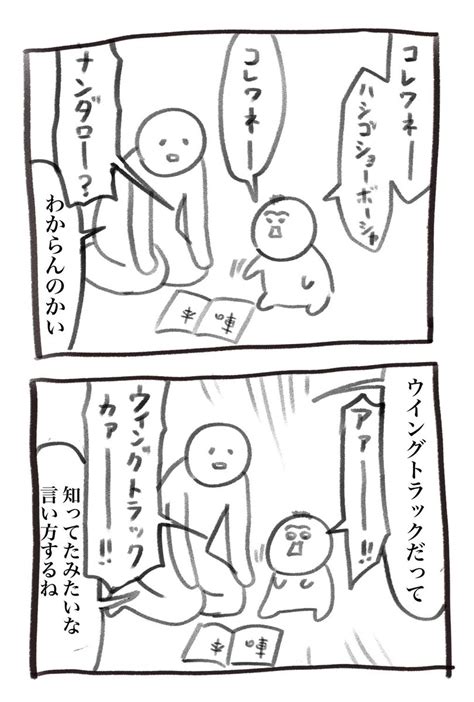 コレワネー
ハシゴショーボーシャ
コレワネー
ナンダロー？
わからんのかい
ウイングトラックだって
アァーー!!
ウィングトラック
カァーー!!
知ってたみたいな
言い方するね